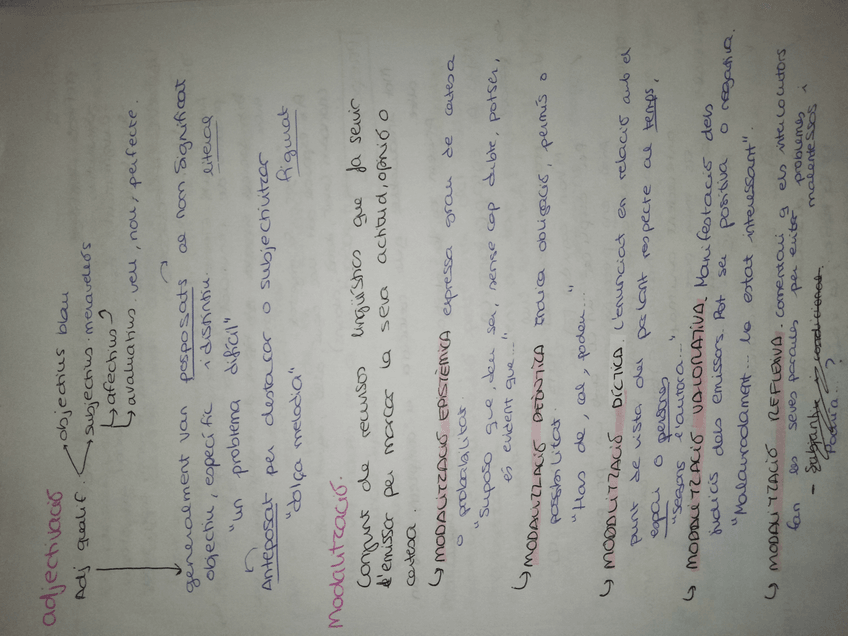 adjectivació
Adj qualif. → objectius blau
→ subjectius. meravellós
↳ afectius
↳ avaluatius. vell, nou, perfecte.
generalment van posposats de nom significat
objectiu, específic i distintiu. literal
"un problema difícil"
Anteposat per destacar o subjectivitzar
"dolça melodia" figurat
Modalització.
Conjunt de recursos lingüístics que fa servir
l'emissor per marcar la seva actitud, opinió o
certesa.
↳ MODALITZACIÓ EPISTÈMICA expressa grau de certesa
o probabilitat.
"Suposo que, deu ser, sense cap dubte, potser,
és evident que..."
↳ MODALITZACIÓ DEÒNTICA obligació, permís o
possibilitat.
"Has de, cal, podem..."
↳ MODALITZACIÓ DÍCTICA. L'enunciat en relació amb el
punt de vista del parlant respecte al temps,
espai o persones
"segons l'autora..."
↳ MODALITZACIÓ VALORATIVA. Manifestació dels
judicis dels emissors. Pot ser positiva o negativa.
"Malauradament... ha estat interessant".
↳ MODALITZACIÓ REFLEXIVA. comentari q els interlocutors
fan les seves paraules per evitar problemes i
malentessos
- Subjuntiu i condicional
Podria...?